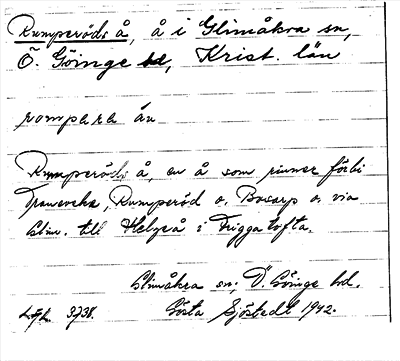 Rumperöds å, å i Glimåkra sn,
Ö. Göinge hd, Krist. län
rompara án
Rumperöds å, en å som rinner förbi
Traneveka, Rumperöd o. Bosarp o. via
till Helgeå i Trigga tofta.
Glimåkra sn; Ö. Göinge hd.
3738. Gösta Sjöstedt 1942.